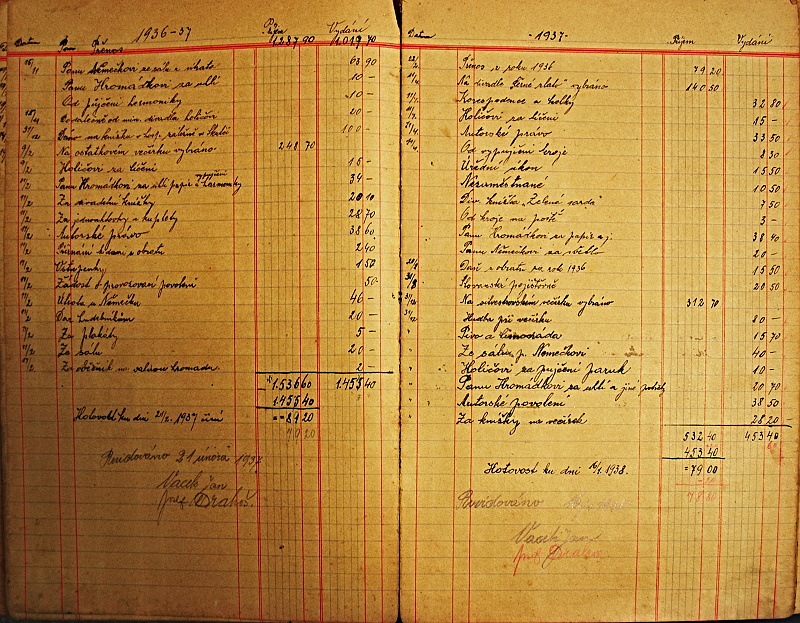 Datum 1936-37 Příjem Vydání
Přenos 1.287 90 1.019 70
15/11 Panu Němečkovi ze sálu a uhato 68 90
Panu Hromádkovi za uhlí 10 -
Od půjčení harmoniky 10 -
20 -
100 -
9/2 Na ostatkovém večírku vybráno 248 70
Holičovi za líčení 15 -
Panu Hromádkovi za uhlí papír a půjčení harmoniky 34 -
Za divadelní knížky 20 10
Za jednoaktovky a kuplety 28 70
Autorské právo 38 60
z obratu 2 40
Vstupenky 1 50
Žádost o provozovací povolení 50 -
Útrata u Němečka 46 -
Dar hudebníkům 20 -
Za plakáty 5 -
Za sálu 20 -
Za obecních 2 -
1.536 60 1.455 40
1.455 40
Hotovost ku dni 21/2. 1937 činí = 81 20
79 20
Revidováno 21 února 1937
Vacek Jan
Jos. Drahoš.
Datum -1937- Příjem Vydání
Přenos z roku 1936 79 20
Na divadle "Černé zlato" vybráno 140 50
Korespondence a kolky 32 80
Holičovi za líčení 15 -
Autorské právo 33 50
Od vypůjčení kroje 8 30
Úřední úkon 15 50
Nezaměstnané 10 50
Div. knížka "Zelená sarda" 7 50
Od kroje na poště 3 -
Panu Hromádkovi za papír a j. 38 40
Panu Němečkovi za světlo 20 -
Daň z obratu za rok 1936 15 50
Slovanská pojišťovně 20 50
31/12 Na silvestrovském večírku vybráno 312 70
31/12 Hudba při večírku 80 -
" Pivo a limonáda 15 70
" Ze sálu p. Němečkovi 40 -
" Holičovi za půjčení paruk 10 -
" Panu Hromádkovi za uhlí a jiné potřeby 20 70
" Autorské povolení 38 50
" Za knížky na večírek 28 20
532 40 453 40
453 40
Hotovost ku dni 16/1. 1938. = 79 00
78 80
Revidováno
Vacek Jan
Jos. Drahoš